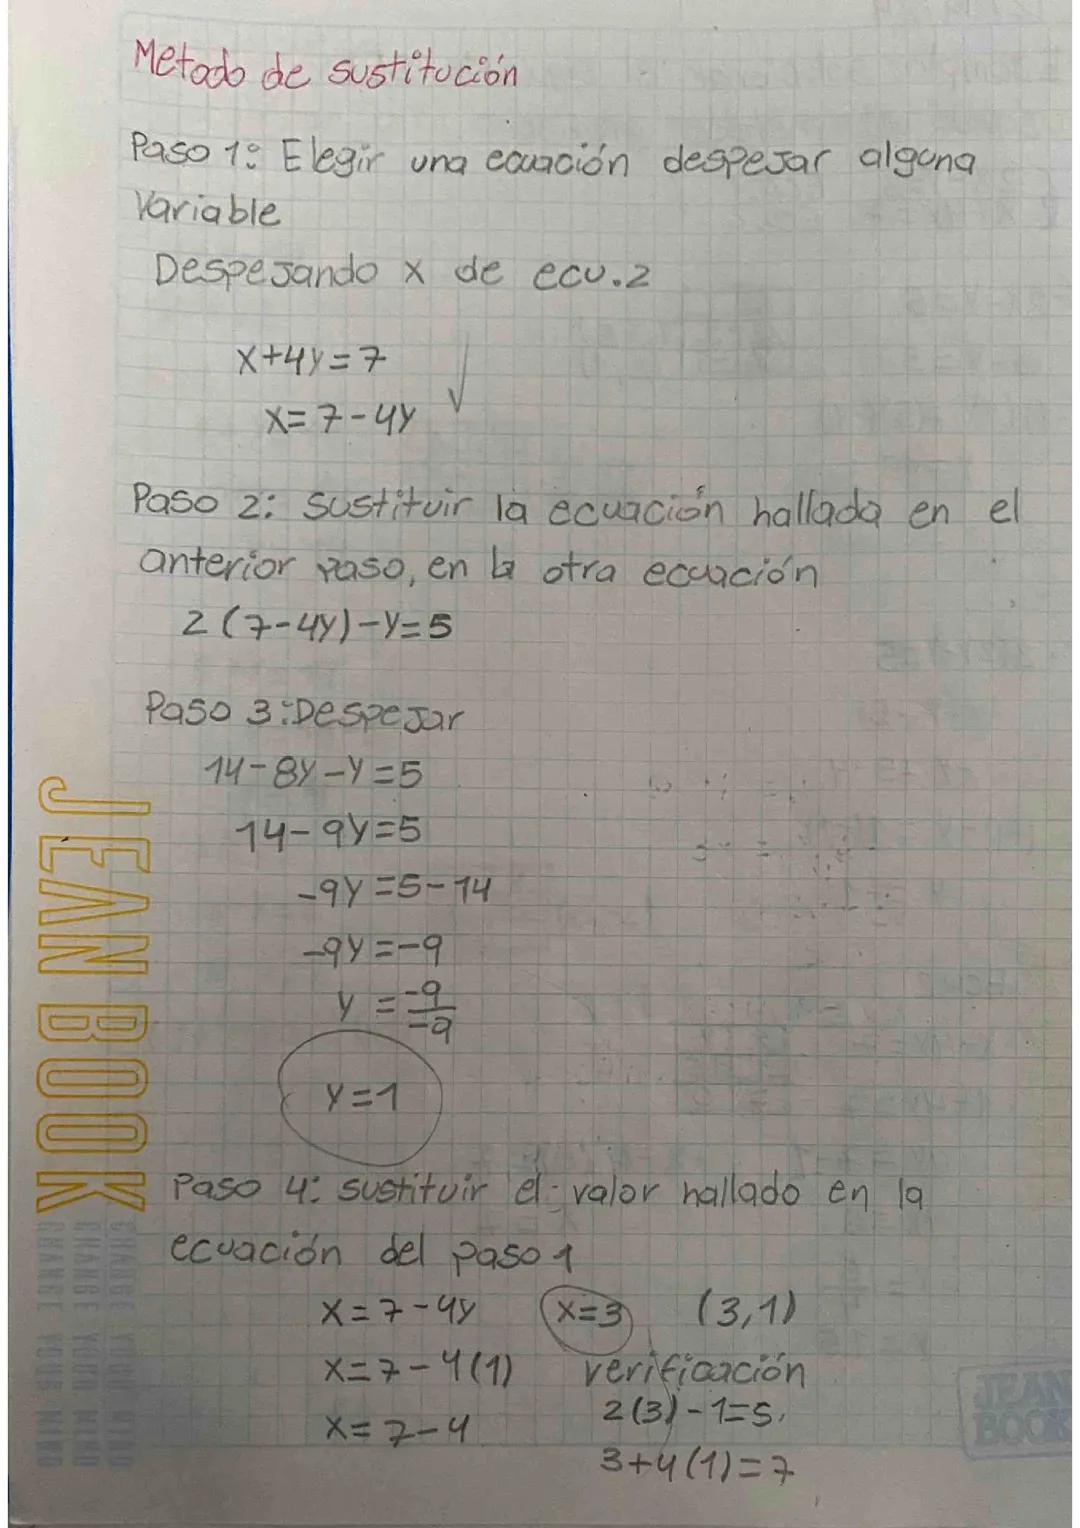 Metodo de sustitución
Paso 1: Elegir una ecuación despejar alguna
Variable
Despejando x de ecu.2
x+4y=7
x=7-4y
Paso 2: Sustituir la ecuación hallada en el
anterior paso, en la otra ecuación
2(7-4y)-y=5
Paso 3: Despejar
14-8y-y=5
14-9y=5
-9y=5-14
-9y=-9
y=-9/-9
y=1
Paso 4: sustituir el valor hallado en la
ecuación del paso 1
x=7-4y x=3 (3,1)
x=7-4(1) verificación
x=7-4 2(3)-1=5,
3+4(1)=7
JEAN BOOK
CHANGE YOUR MIND
CHANGE YOUR MIND
CHANGE YOUR MIND
JEAN
BOOK